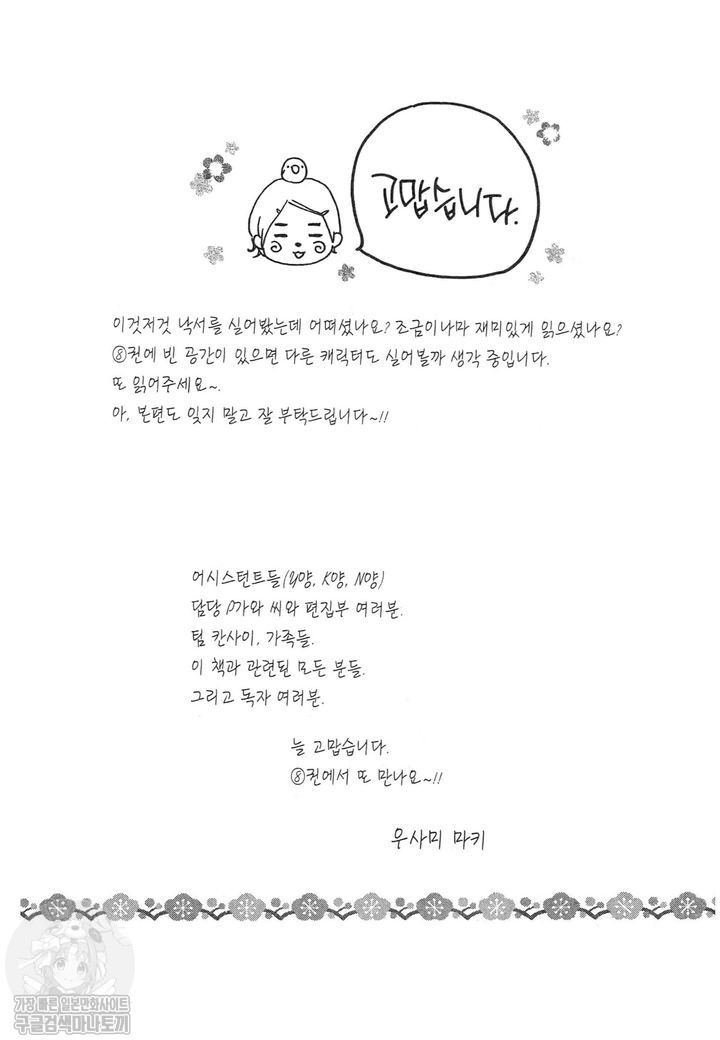 고맙습니다.
이것저것 낙서를 실어봤는데 어떠셨나요? 조금이나마 재미있게 읽으셨나요?
⑧권에 빈 공간이 있으면 다른 캐릭터도 실어볼까 생각 중입니다.
또 읽어주세요~.
아, 본편도 잊지 말고 잘 부탁드립니다~!!
어시스턴트들(Y양, K양, N양)
담당 P가와 씨와 편집부 여러분.
팀 칸사이, 가족들.
이 책과 관련된 모든 분들.
그리고 독자 여러분.
늘 고맙습니다.
⑧권에서 또 만나요~!!
우사미 마키
가장 빠른 일본만화사이트
구글검색마나토끼